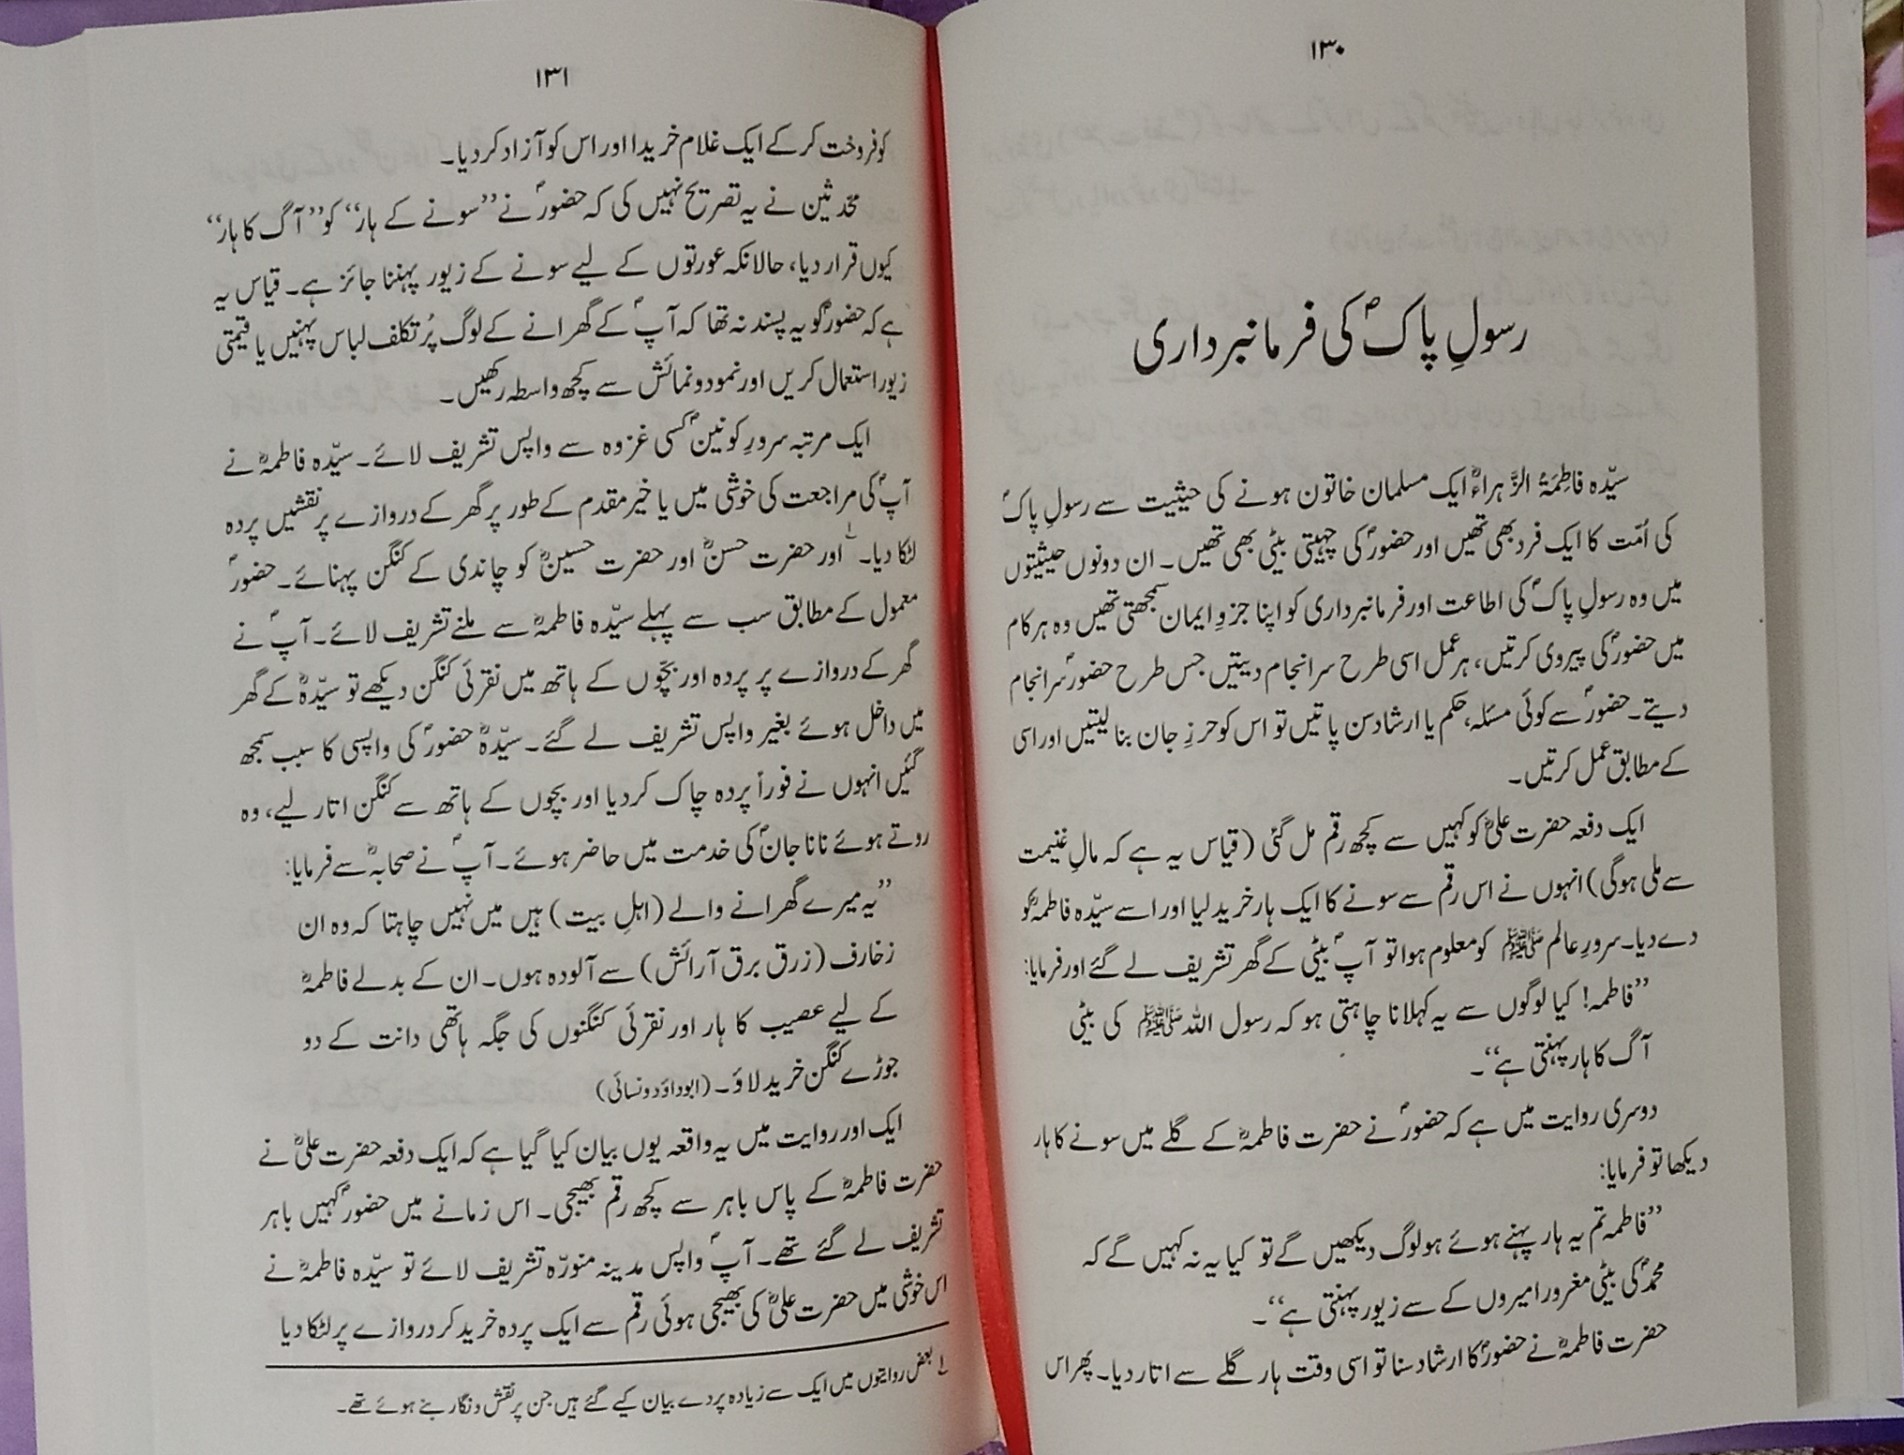 ۱۳۰
رسولِ پاکؐ کی فرمانبرداری
سیّدہ فاطِمَۃُ الزَّہراءؓ ایک مسلمان خاتون ہونے کی حیثیت سے رسولِ پاکؐ
کی اُمّت کا ایک فرد بھی تھیں اور حضورؐ کی چہیتی بیٹی بھی تھیں۔ ان دونوں حیثیتوں
میں وہ رسولِ پاکؐ کی اطاعت اور فرمانبرداری کو اپنا جزوِ ایمان سمجھتی تھیں وہ ہر کام
میں حضورؐ کی پیروی کرتیں، ہر عمل اسی طرح سرانجام دیتیں جس طرح حضورؐ سرانجام
دیتے۔ حضورؐ سے کوئی مسئلہ، حکم یا ارشاد سن پاتیں تو اس کو حرزِ جان بنا لیتیں اور اسی
کے مطابق عمل کرتیں۔
ایک دفعہ حضرت علیؓ کو کہیں سے کچھ رقم مل گئی (قیاس یہ ہے کہ مالِ غنیمت
سے ملی ہوگی) انہوں نے اس رقم سے سونے کا ایک ہار خرید لیا اور اسے سیّدہ فاطمہؓ کو
دے دیا۔ سرورِ عالم ﷺ کو معلوم ہوا تو آپؐ بیٹی کے گھر تشریف لے گئے اور فرمایا:
”فاطمہ! کیا لوگوں سے یہ کہلانا چاہتی ہو کہ رسول اللہ ﷺ کی بیٹی
آگ کا ہار پہنتی ہے“۔
دوسری روایت میں ہے کہ حضورؐ نے حضرت فاطمہؓ کے گلے میں سونے کا ہار
دیکھا تو فرمایا:
”فاطمہ تم یہ ہار پہنے ہوئے ہو لوگ دیکھیں گے تو کیا یہ نہ کہیں گے کہ
محمدؐ کی بیٹی مغرور امیروں کے سے زیور پہنتی ہے“۔
حضرت فاطمہؓ نے حضورؐ کا ارشاد سنا تو اسی وقت ہار گلے سے اتار دیا۔ پھر اس
۱۳۱
کو فروخت کر کے ایک غلام خریدا اور اس کو آزاد کر دیا۔
محدّثین نے یہ تصریح نہیں کی کہ حضورؐ نے ”سونے کے ہار“ کو ”آگ کا ہار“
کیوں قرار دیا، حالانکہ عورتوں کے لیے سونے کے زیور پہننا جائز ہے۔ قیاس یہ
ہے کہ حضورؐ کو یہ پسند نہ تھا کہ آپؐ کے گھرانے کے لوگ پُرتکلف لباس پہنیں یا قیمتی
زیور استعمال کریں اور نمود و نمائش سے کچھ واسطہ رکھیں۔
ایک مرتبہ سرورِ کونینؐ کسی غزوہ سے واپس تشریف لائے۔ سیّدہ فاطمہؓ نے
آپؐ کی مراجعت کی خوشی میں یا خیر مقدم کے طور پر گھر کے دروازے پر نقشیں پردہ
لٹکا دیا۔ لے اور حضرت حسنؓ اور حضرت حسینؓ کو چاندی کے کنگن پہنائے۔ حضورؐ
معمول کے مطابق سب سے پہلے سیّدہ فاطمہؓ سے ملنے تشریف لائے۔ آپؐ نے
گھر کے دروازے پر پردہ اور بچّوں کے ہاتھ میں نقرئی کنگن دیکھے تو سیّدہؓ کے گھر
میں داخل ہوئے بغیر واپس تشریف لے گئے۔ سیّدہؓ حضورؐ کی واپسی کا سبب سمجھ
گئیں انہوں نے فوراً پردہ چاک کر دیا اور بچوں کے ہاتھ سے کنگن اتار لیے، وہ
روتے ہوئے نانا جانؐ کی خدمت میں حاضر ہوئے۔ آپؐ نے صحابہؓ سے فرمایا:
”یہ میرے گھرانے والے (اہلِ بیت) ہیں میں نہیں چاہتا کہ وہ ان
زخارف (زرق برق آرائش) سے آلودہ ہوں۔ ان کے بدلے فاطمہؓ
کے لیے عصیب کا ہار اور نقرئی کنگنوں کی جگہ ہاتھی دانت کے دو
جوڑے کنگن خرید لاؤ۔ (ابوداؤد و نسائی)
ایک اور روایت میں یہ واقعہ یوں بیان کیا گیا ہے کہ ایک دفعہ حضرت علیؓ نے
حضرت فاطمہؓ کے پاس باہر سے کچھ رقم بھیجی۔ اس زمانے میں حضورؐ کہیں باہر
تشریف لے گئے تھے۔ آپؐ واپس مدینہ منورّہ تشریف لائے تو سیّدہ فاطمہؓ نے
اس خوشی میں حضرت علیؓ کی بھیجی ہوئی رقم سے ایک پردہ خرید کر دروازے پر لٹکا دیا
لے بعض روایتوں میں ایک سے زیادہ پردے بیان کیے گئے ہیں جن پر نقش و نگار بنے ہوئے تھے۔